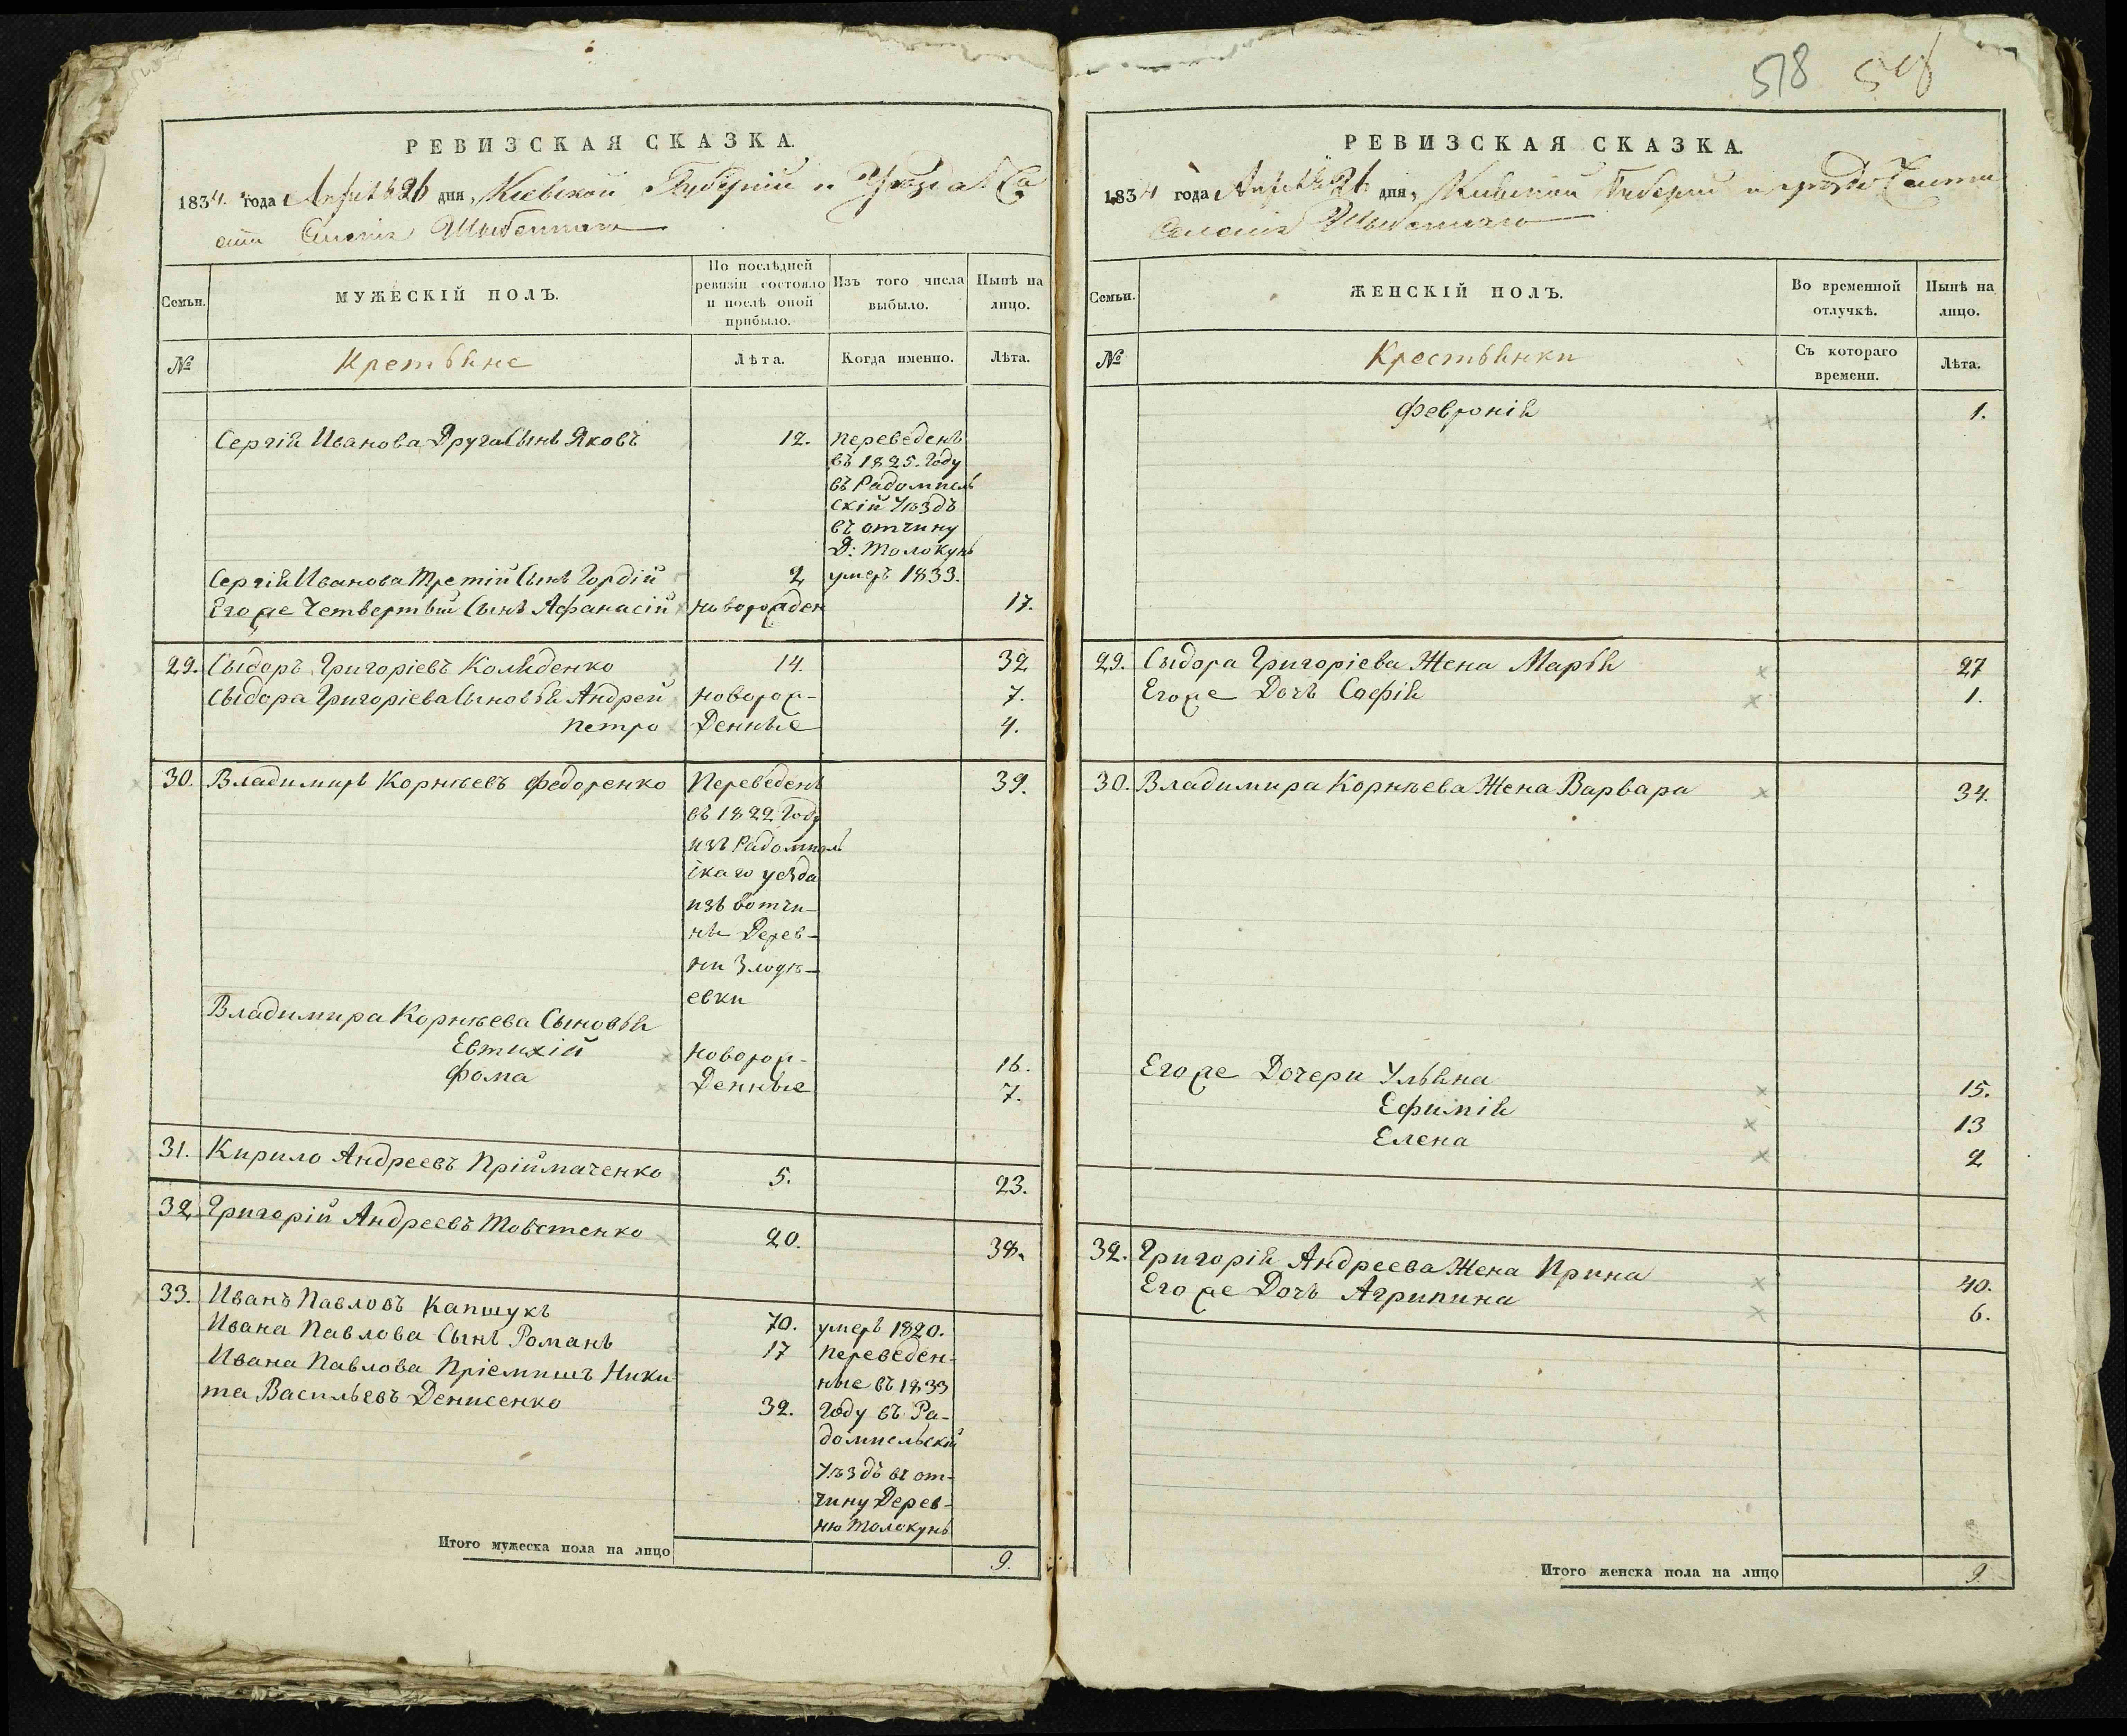 518
РЕВИЗСКАЯ СКАЗКА.
1834. года Апреля 26 дня, Киевской Губернии и Уѣзда Ча
сти Селенія
Семьи.
МУЖЕСКІЙ ПОЛЪ.
По послѣдней ревизіи состояло и послѣ оной прибыло.
Изъ того числа выбыло.
Нынѣ на лицо.
№
Крестьяне
Лѣта.
Когда именно.
Лѣта.
Сергія Иванова Другій Сынъ Яковъ 12. переведенъ
въ 1825. Году
въ Радомысль
скій Уѣздъ
въ отчину
Д: Толокунь
Сергія Иванова Третій Сынъ Гордій 2 умеръ 1833.
Его же Четвертый Сынъ Афанасій новорожден 17.
29. Сыдоръ Григоріевъ Коляденко 14. 32
Сыдора Григоріева Сыновья Андрей новорож- 7.
Петро Денные 4.
30. Владимиръ Корнѣевъ Федоренко Переведенъ 39.
въ 1822 Году
изъ Радомысль
скаго уезда
изъ вотчи-
ны Дерев-
ни Злодѣ-
евки
Владимира Корнѣева Сыновья
Евтихій новорож- 16.
Фома Денные 7.
31. Кирило Андреевъ Пріймаченко 5. 23.
32. Григорій Андреевъ Товстенко 20. 38.
33. Иванъ Павловъ Капшукъ 70. умеръ 1820.
Ивана Павлова Сынъ Романъ 17 переведен-
Ивана Павлова Пріемышъ Ники ные въ 1833
та Васильевъ Денисенко 32. Году въ Ра-
домысльскій
Уѣздъ въ от-
чину Дерев-
ню Толокунь
Итого мужеска пола на лицо 9.
РЕВИЗСКАЯ СКАЗКА.
1834 года Апреля 26 дня, Киевской Губерніи и уѣзда Части
Селенія
Семьи.
ЖЕНСКІЙ ПОЛЪ.
Во временной отлучкѣ.
Нынѣ на лицо.
№
Крестьянки
Съ котораго времени.
Лѣта.
Февронія 1.
29. Сыдора Григоріева Жена Марья 27
Его же Дочь Софія 1.
30. Владимира Корнѣева Жена Варвара 34.
Его же Дочери Ульяна 15.
Ефимія 13
Елена 2
32. Григорія Андреева Жена Ирина 40.
Его же Дочь Агрипина 6.
Итого женска пола на лицо 9.